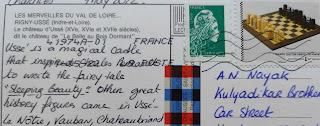 LES MERVEILLES DU VAL DE LOIRE...
RIGNY-USSÉ (Indre-et-Loire).
Le château d'Ussé (XVe, XVIe et XVIIe siècles),
dit le château de "La Belle au Bois Dormant".
41974A-01 FRANCE
Ussé is a magical Castle
that inspired Charles
to write the fairy tale
"Sleeping Beauty". Other great
history figures came in Ussé.
Le Nôtre, Vauban, Chateaubriand
A.N. Nayak
Kulyadikar Brother
Car Street